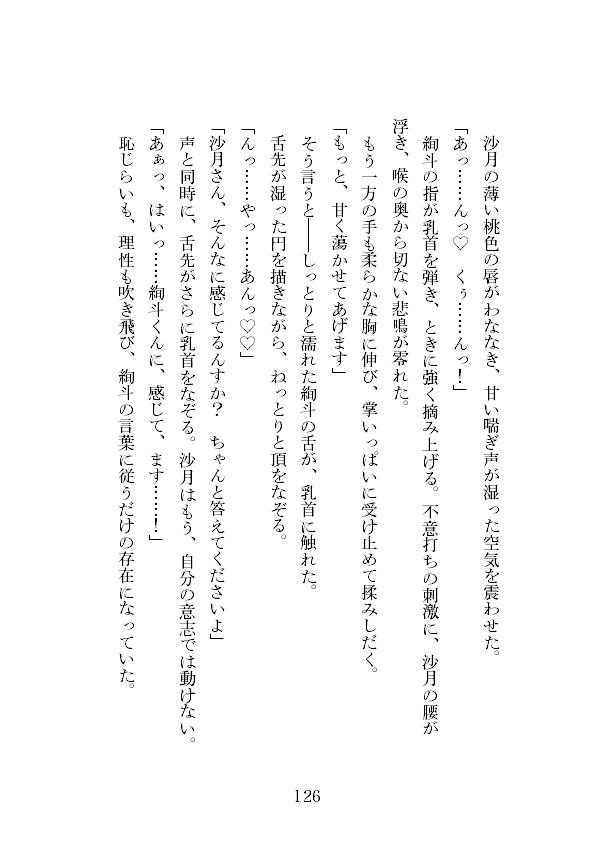 沙月の薄い桃色の唇がわななき、甘い喘ぎ声が湿った空気を震わせた。
「あっ……んっ♡　くぅ……んっ！」
絢斗の指が乳首を弾き、ときに強く摘み上げる。不意打ちの刺激に、沙月の腰が
浮き、喉の奥から切ない悲鳴が零れた。
もう一方の手も柔らかな胸に伸び、掌いっぱいに受け止めて揉みしだく。
「もっと、甘く蕩かせてあげます」
そう言うと――しっとりと濡れた絢斗の舌が、乳首に触れた。
舌先が湿った円を描きながら、ねっとりと頂をなぞる。
「んっ……やっ……あんっ♡♡」
「沙月さん、そんなに感じてるんすか？　ちゃんと答えてくださいよ」
声と同時に、舌先がさらに乳首をなぞる。沙月はもう、自分の意志では動けない。
「あぁっ、はいっ……絢斗くんに、感じて、ます……！」
恥じらいも、理性も吹き飛び、絢斗の言葉に従うだけの存在になっていた。
126